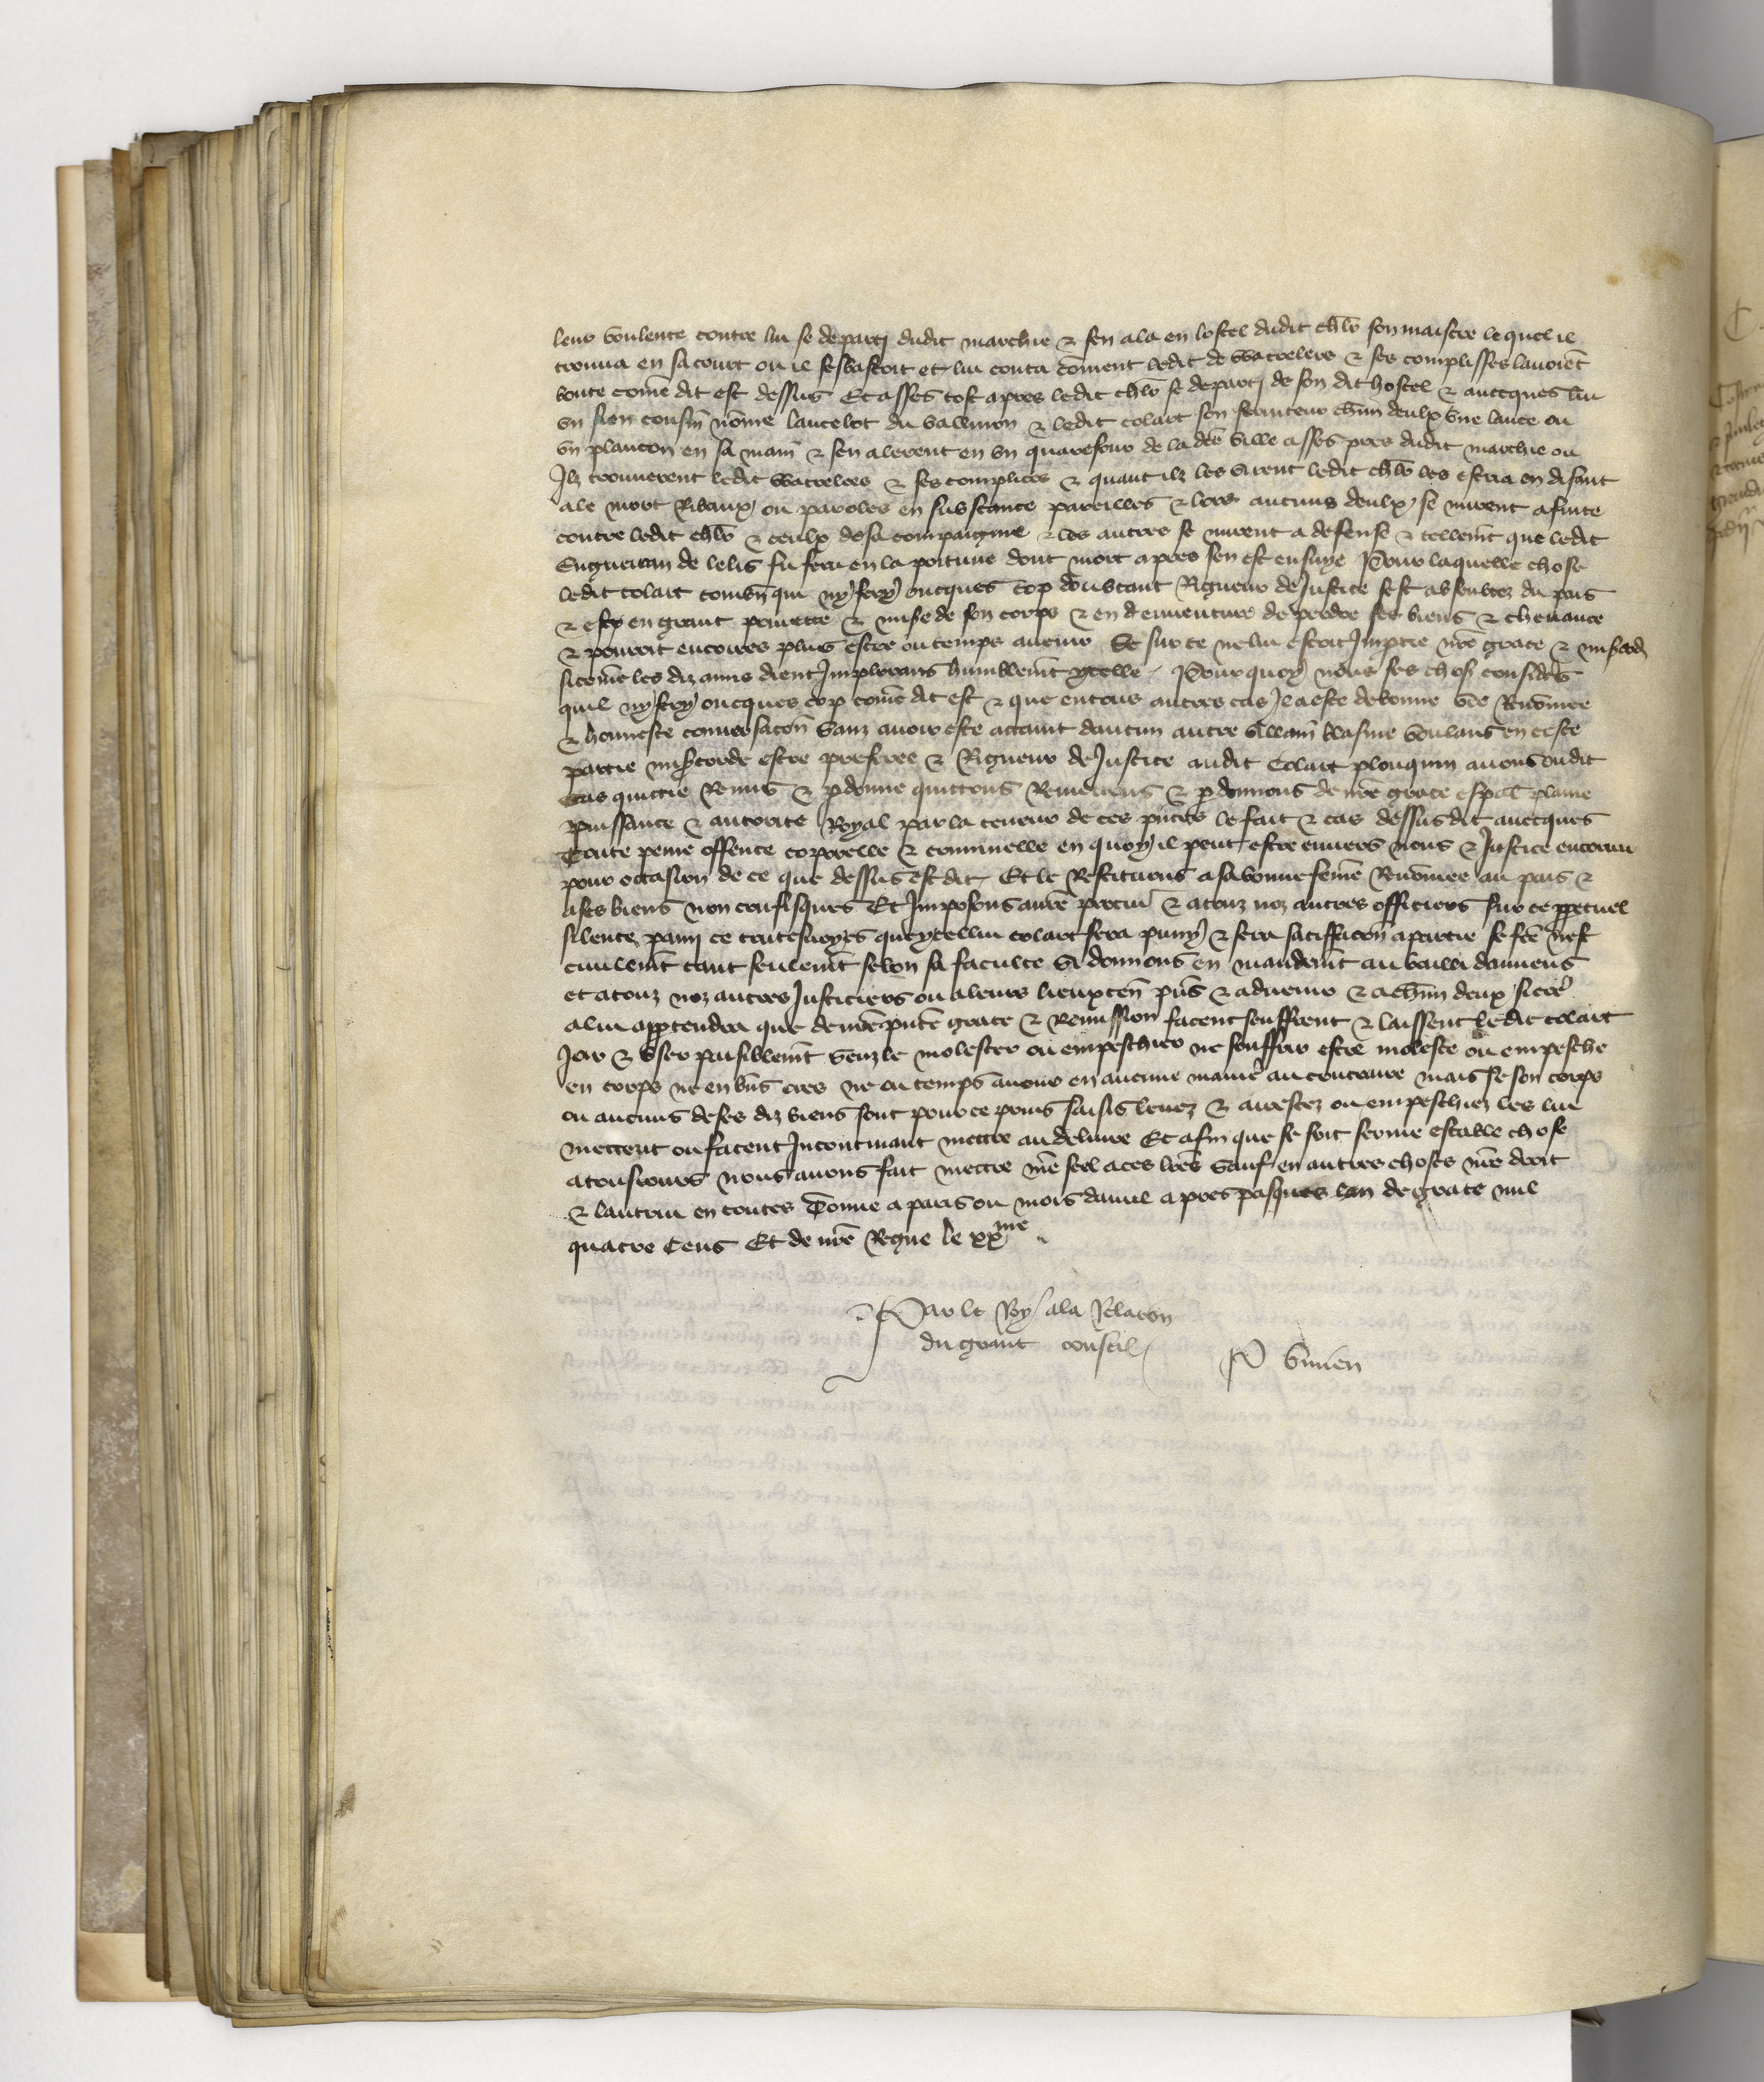 leur voulente contre lui se departi dudit marchie & sen ala en lostel dudit chlr son maistre lequel il
trouua en sa court ou il sesbastoit et lui conta coment ledit de Watrelers & ses complisses lauoiet
boute come dit est dessus Et asses tost apres ledit chlr se departi de son dit hostel & auecques lui
vn sien cousin nome lancelot du & ledit colart son seruiteur chun deulx vne lance ou
vn plancon en sa main & sen alerent en vn quarefour de la dce ville asses pres dudit marchie ou
Ilz trouuerent ledit Watrelers & ses complices & quant ilz les virent ledit chlr les escria en disant
a le mort Ribaux ou paroles en substance pareilles & lors aucuns deulx se mirent a fuite
contre ledit chlr & ceulx de sa compaignie & les autres se mirent a defense & tellemt que ledit
Enguerran de lelis fu feru en la poitrine dont mort apres sen est ensuye Pour laquelle chose
ledit colart combn qui ny fery oncques cop doubtant Rigueur de Justice sest absentez du pais
& est en grant pourete & misere de son corps & en denuenture de perdre ses biens & cheuance
& pourroit encores plus estre ou temps auenir Se sur ce ne lui estoit Imptie nre grace & misicde
sicome les diz amis dient Implorans humblemt ycelle Pour quoy nous ses choses considerees
quil ny fery oncques cop come dit est & que en tous autres cas Il a este de bonne vie Renomee
& honneste conuersacon sanz auoir este attaint daucun autre villain blasme voulans en ceste
partie misicorde estre preferee & Rigueur de Justice audit Colart plouquin auons oudit
cas quictie Remis & pdonne quictons Remectons & pdonnons de nre grace espal plaine
puissance & autorite Royal par la teneur de ces pntes le fait & cas dessus dit auecques
Toute peine offence corporelle & criminelle en quoy il peut estre enuers nous & Justice encouru
pour occasion de ce que dessus est dit Et le Restituons a sa bonne feme Renomee au pais &
a ses biens non confisques Et Imposons a nre procur & a touz noz autres officiers sur ce ppetuel
silence parmi ce toutesuoyes que ycellui colart sera puny & fera satiffacon a partie se fce nest
ciuilemt tant seulemt selon sa faculte Si donnons en mandemt au bailli damiens
et a touz noz autres Justiciers ou a leurs lieuxten pns & aduenir & a chun deux si come
a lui apptendra que de nre pnte grace & Remission facent seuffrent & laissent ledit colart
Joir & vser paisiblemt senz le molester ou empeschier ne souffrir estre moleste ou empesche
en corps ne en bns ores ne ou temps auenir en aucune manie au contraire mais se son corps
ou aucuns de ses diz biens sont pour ce prins saisis leuez & arrestez ou empeschiez les lui
mettent ou facent Incontinant mettre au deliure Et afin que se soit ferme estable chose
a tousiours nous auons fait mettre nre seel a ces lres Sauf en autres choses nre droit
& lautrui en toutes Donne a paris ou mois dauril apres pasques lan de grace mil
quatre Cens Et de nre Regne le xxme
Par le Roy a la Relacon
du grant conseil
P